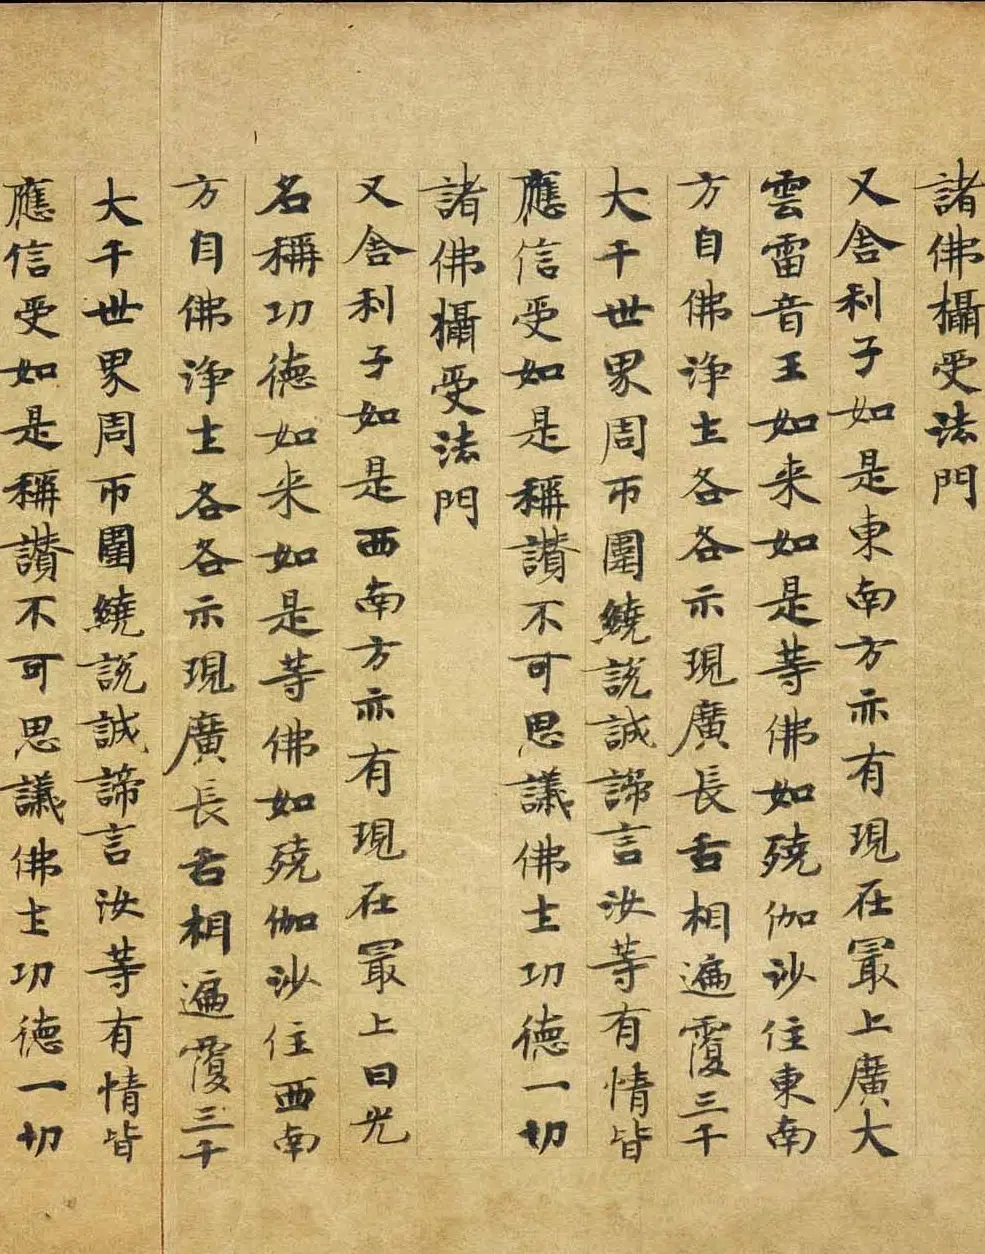 諸佛攝受法門
又舍利子如是東南方亦有現在冣上廣大
雲雷音王如来如是等佛如殑伽沙住東南
方自佛淨土各各示現廣長舌相遍覆三千
大千世界周帀圍繞說誠諦言汝等有情皆
應信受如是稱讃不可思議佛土功德一切
諸佛攝受法門
又舍利子如是西南方亦有現在冣上日光
名稱功德如来如是等佛如殑伽沙住西南
方自佛淨土各各示現廣長舌相遍覆三千
大千世界周帀圍繞說誠諦言汝等有情皆
應信受如是稱讃不可思議佛土功德一切